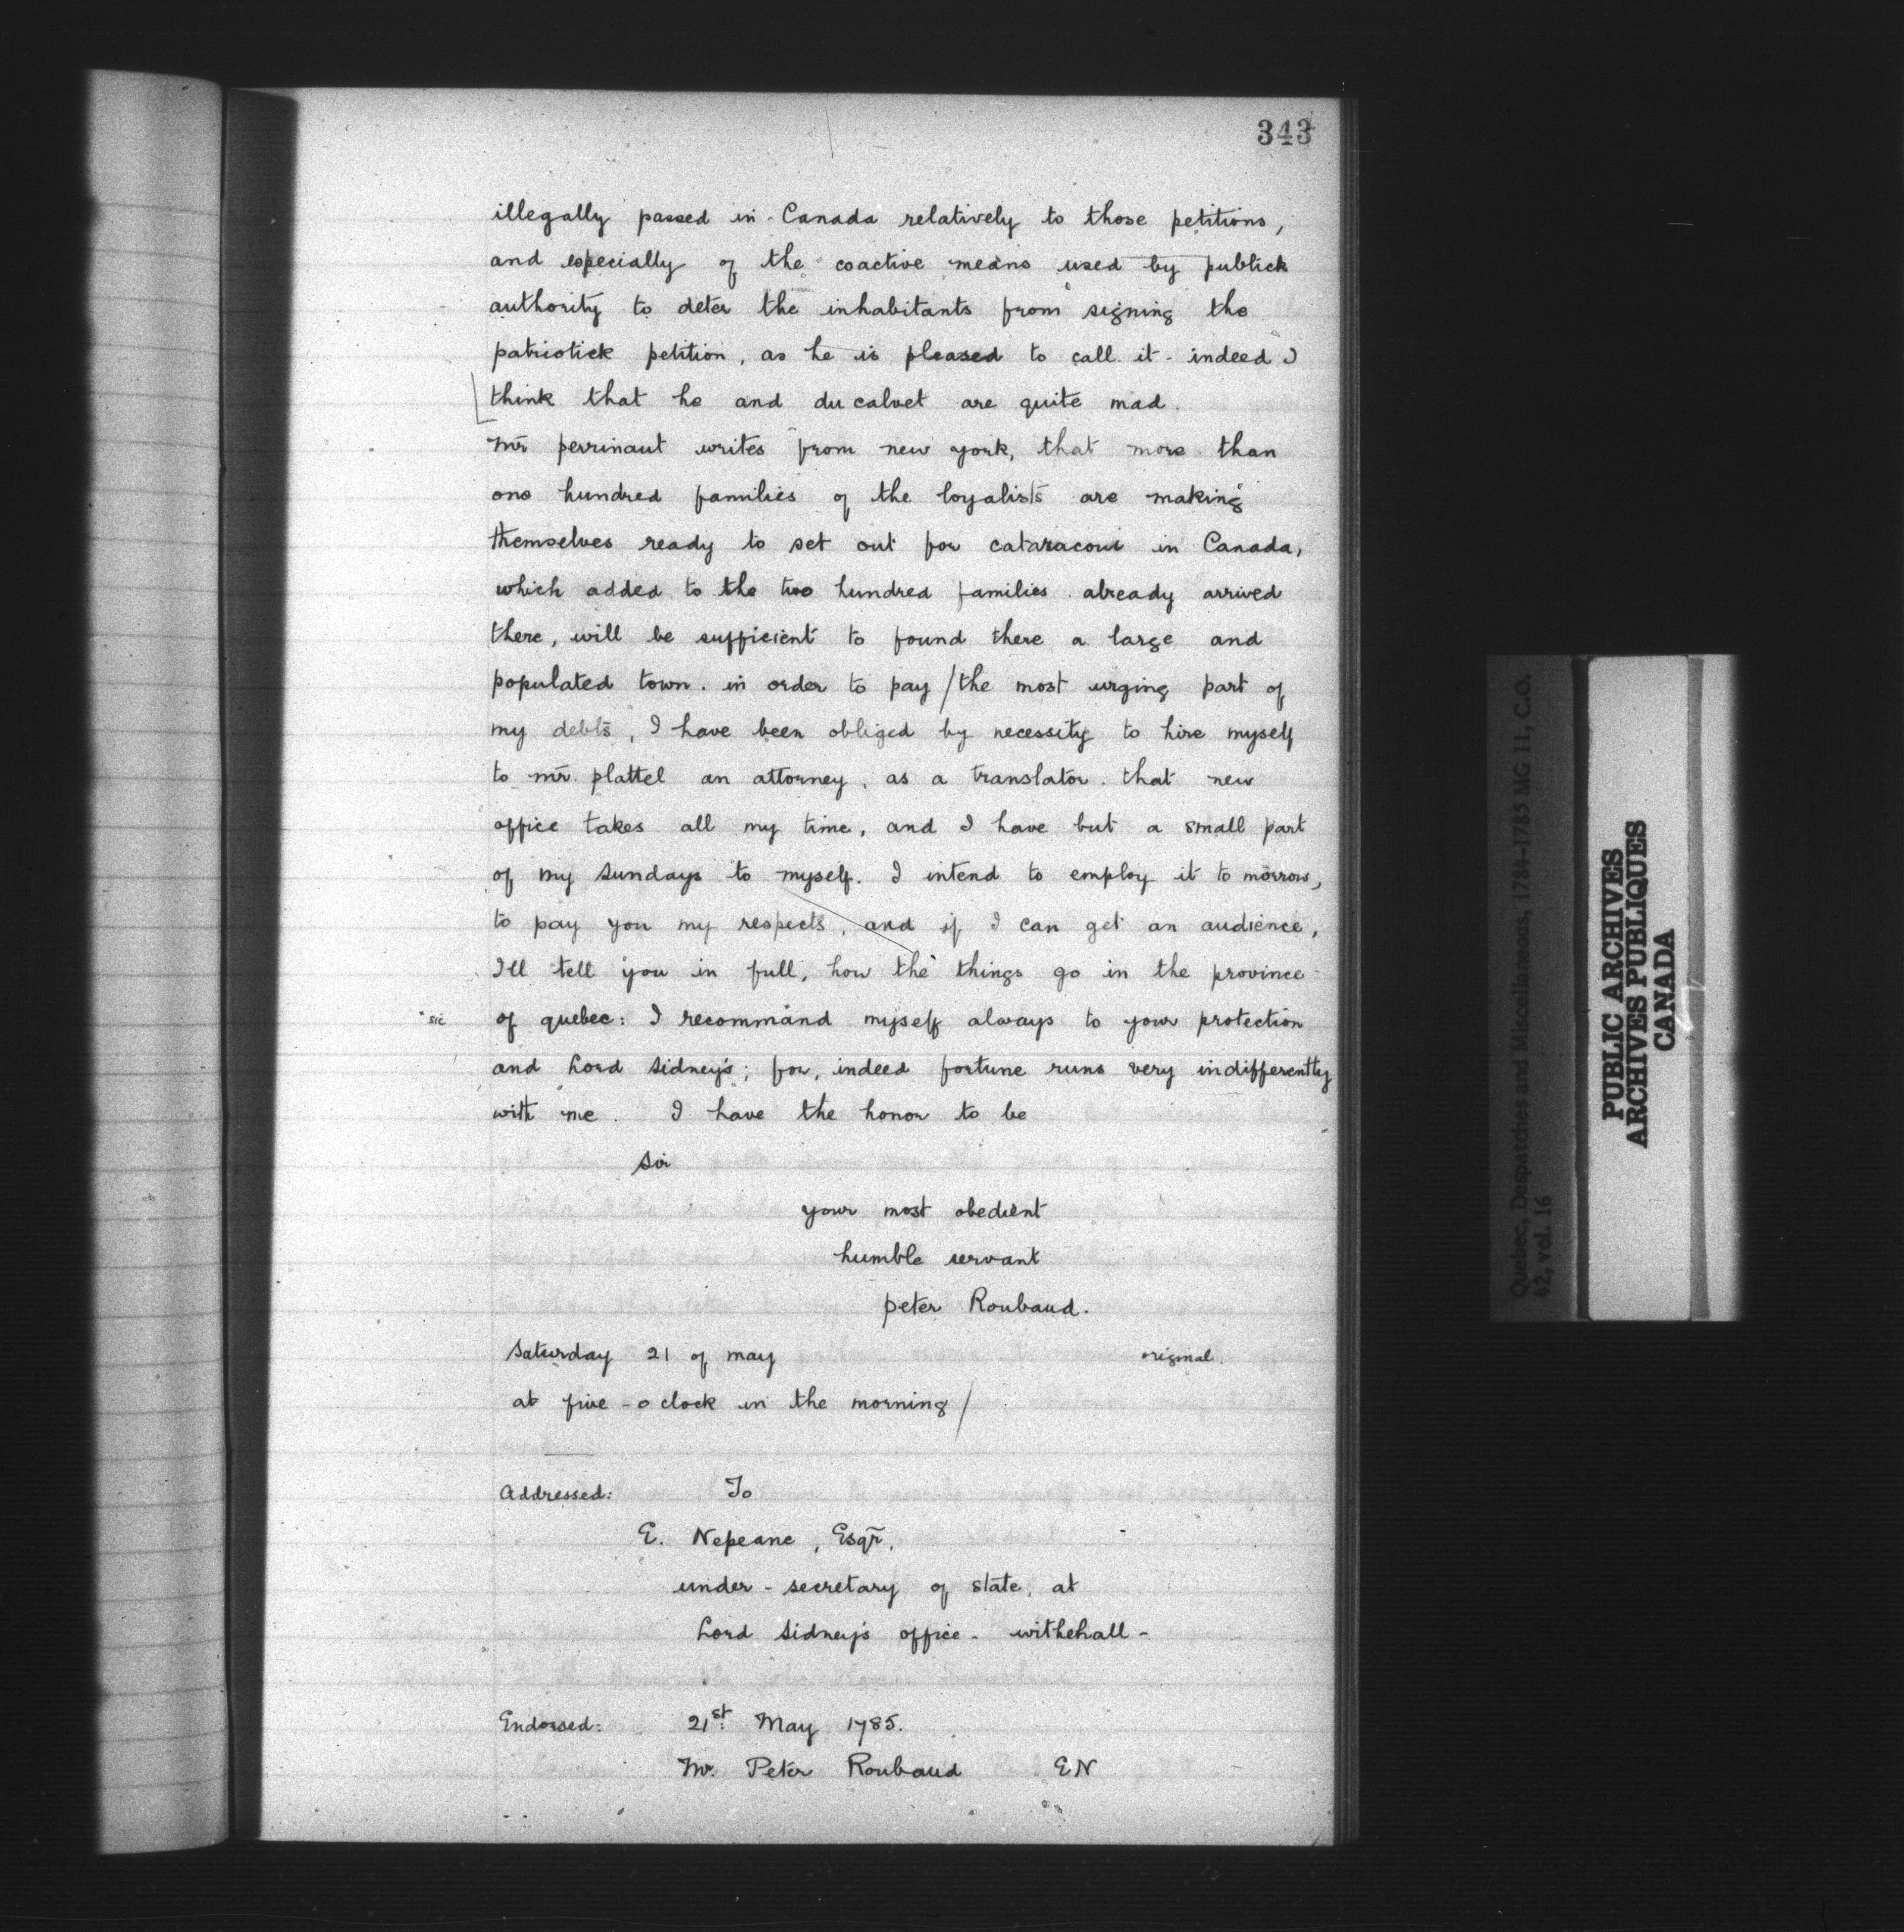 343
illegally passed in Canada relatively to those petitions,
and especially of the coactive means used by publick
authority to deter the inhabitants from signing the
patriotick petition, as he is pleased to call it - indeed I
think that he and du calvet are quite mad.
mr perrinaut writes from new york, that more than
one hundred families of the loyalists are making
themselves ready to set out for cataracoui in Canada,
which added to the two hundred families already arrived
there, will be sufficient to found there a large and
populated town. in order to pay / the most urging part of
my debts, I have been obliged by necessity to hire myself
to mr. plattel an attorney, as a translator. that new
office takes all my time, and I have but a small part
of my sundays to myself. I intend to employ it to morrow,
to pay you my respects, and if I can get an audience,
I'll tell you in full, how the things go in the province
sic of quebec: I recommand myself always to your protection
and Lord Sidney's; for, indeed fortune runs very indifferently
with me. I have the honor to be
Sir
your most obedient
humble servant
peter Roubaud.
Saturday 21 of may original.
at five - o clock in the morning /
Addressed: To
E. Nepeane, Esqr,
under - secretary of state, at
Lord Sidney's office - withehall -
Endorsed: 21st May 1785.
Mr. Peter Roubaud EN
Quebec, Despatches and Miscellaneous, 1784-1785 MG 11, C.O.
42, vol. 16
PUBLIC ARCHIVES
ARCHIVES PUBLIQUES
CANADA